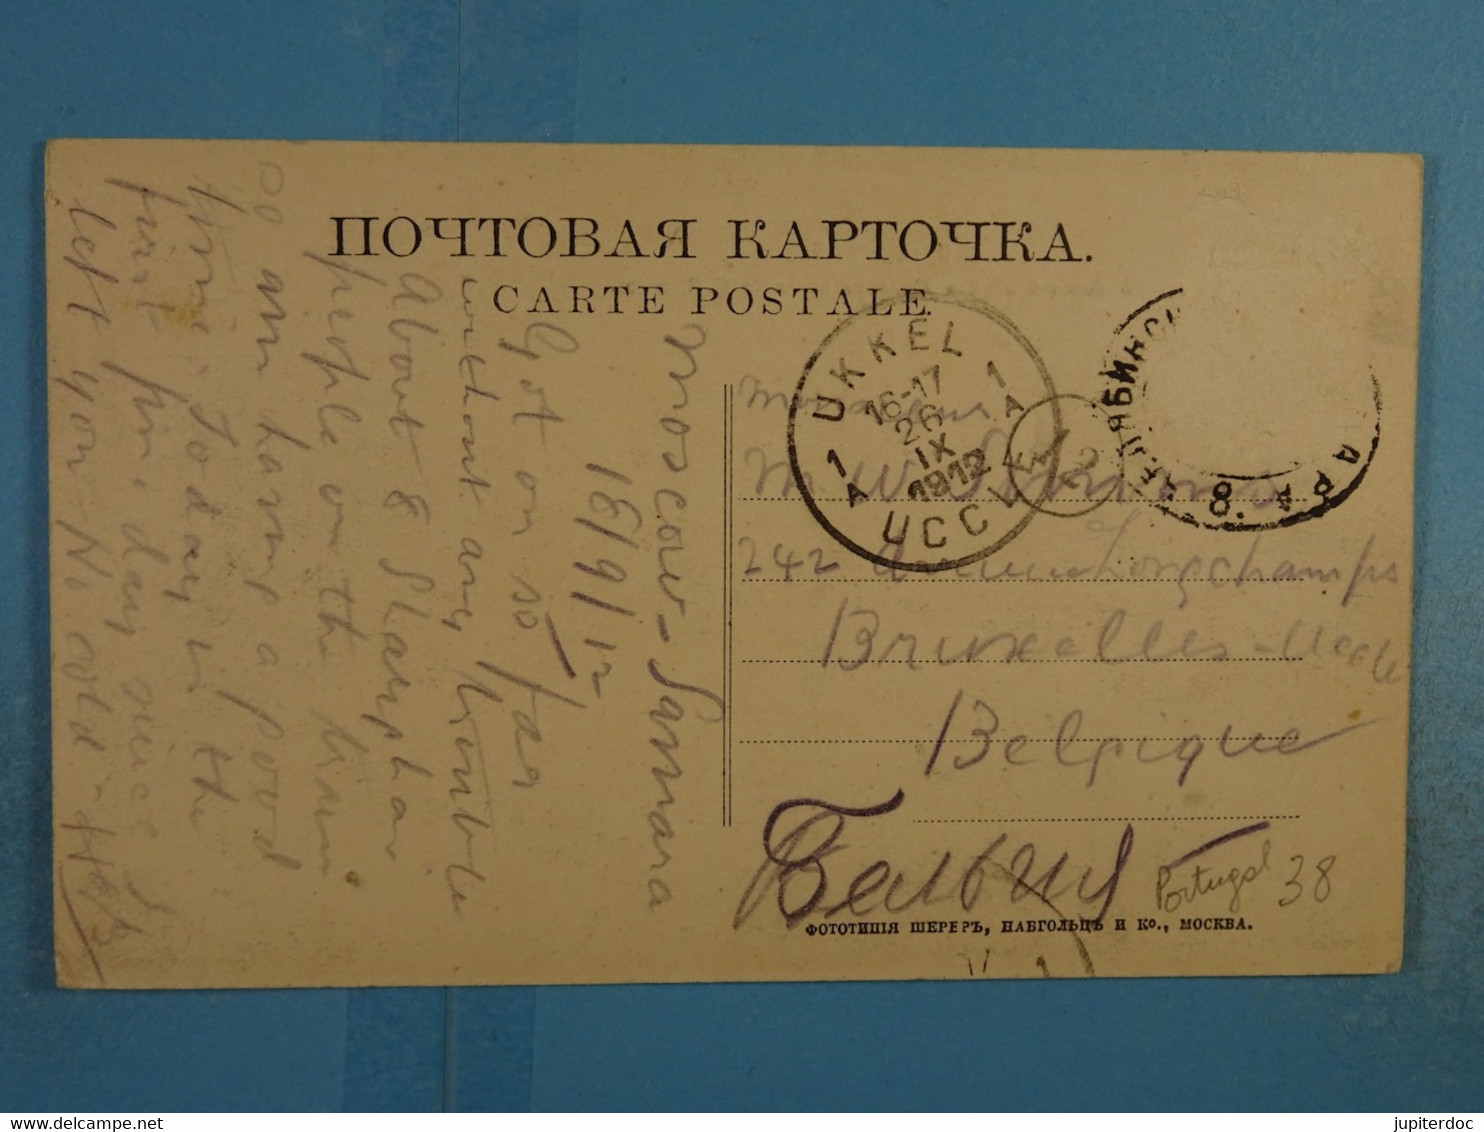 ПОЧТОВАЯ КАРТОЧКА.
CARTE POSTALE.
Moscow-Samara
18/9/12
Got on so far
without any trouble
About 8
people on the train
am having a good
time. Today is the
day since I
left you. No cold -
UKKEL
1 A 1 A
16-17
26
IX
1912
UCCLE
2
8.
M W
242 Longchamps
Bruxelles-Uccle
Belgique
Бельгия
Portugal 38
ФОТОТИПІЯ ШЕРЕРЪ, НАБГОЛЬЦЪ И Ко., МОСКВА.
jupiterdoc
delcampe.net